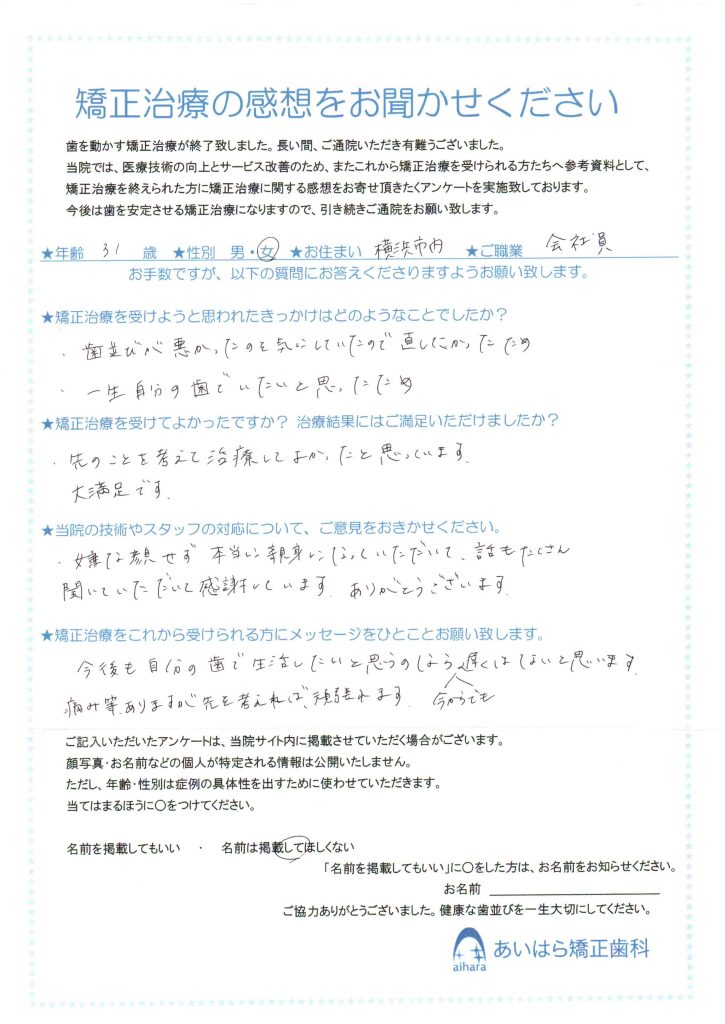 矯正治療の感想をお聞かせください
歯を動かす矯正治療が終了致しました。長い間、ご通院いただき有難うございました。
当院では、医療技術の向上とサービス改善のため、またこれから矯正治療を受けられる方たちへ参考資料として、
矯正治療を終えられた方に矯正治療に関する感想をお寄せ頂きたくアンケートを実施致しております。
今後は歯を安定させる矯正治療になりますので、引き続きご通院をお願い致します。
★年齢 31 歳 ★性別 男・女 ★お住まい 横浜市内 ★ご職業 会社員
お手数ですが、以下の質問にお答えくださりますようお願い致します。
★矯正治療を受けようと思われたきっかけはどのようなことでしたか？
・歯並びが悪かったのを気にしていたので直したかったため
・一生自分の歯でいたいと思ったため
★矯正治療を受けてよかったですか？ 治療結果にはご満足いただけましたか？
・先のことを考えて治療してよかったと思っています。
大満足です。
★当院の技術やスタッフの対応について、ご意見をおきかせください。
・嫌な顔せず本当に親身になっていただいて、話もたくさん
聞いていただいて感謝しています。ありがとうございます。
★矯正治療をこれから受けられる方にメッセージをひとことお願い致します。
今後も自分の歯で生活したいと思うのなら遅くはないと思います。
痛み等ありますが先を考えれば、頑張れます。 今からでも
ご記入いただいたアンケートは、当院サイト内に掲載させていただく場合がございます。
顔写真・お名前などの個人が特定される情報は公開いたしません。
ただし、年齢・性別は症例の具体性を出すために使わせていただきます。
当てはまるほうに〇をつけてください。
名前を掲載してもいい ・ 名前は掲載してほしくない
「名前を掲載してもいい」に〇をした方は、お名前をお知らせください。
お名前
ご協力ありがとうございました。健康な歯並びを一生大切にしてください。
aihara あいはら矯正歯科